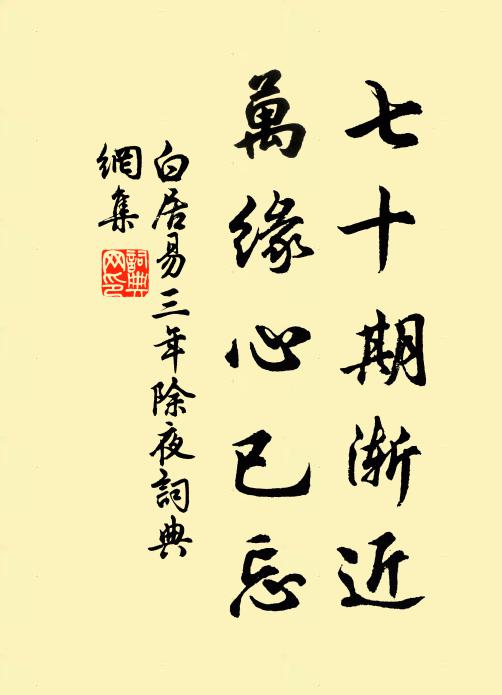 七十期渐近
萬緣心已忘
白居易三年除夜詞典
網集
詞典
网印